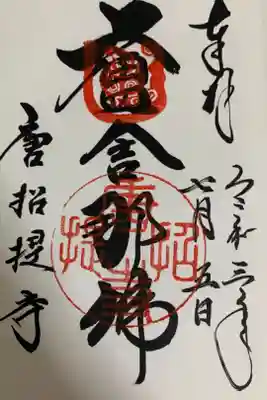 奉拝
令和三年
七月五日
盧舎那佛
唐招提寺
唐招提寺